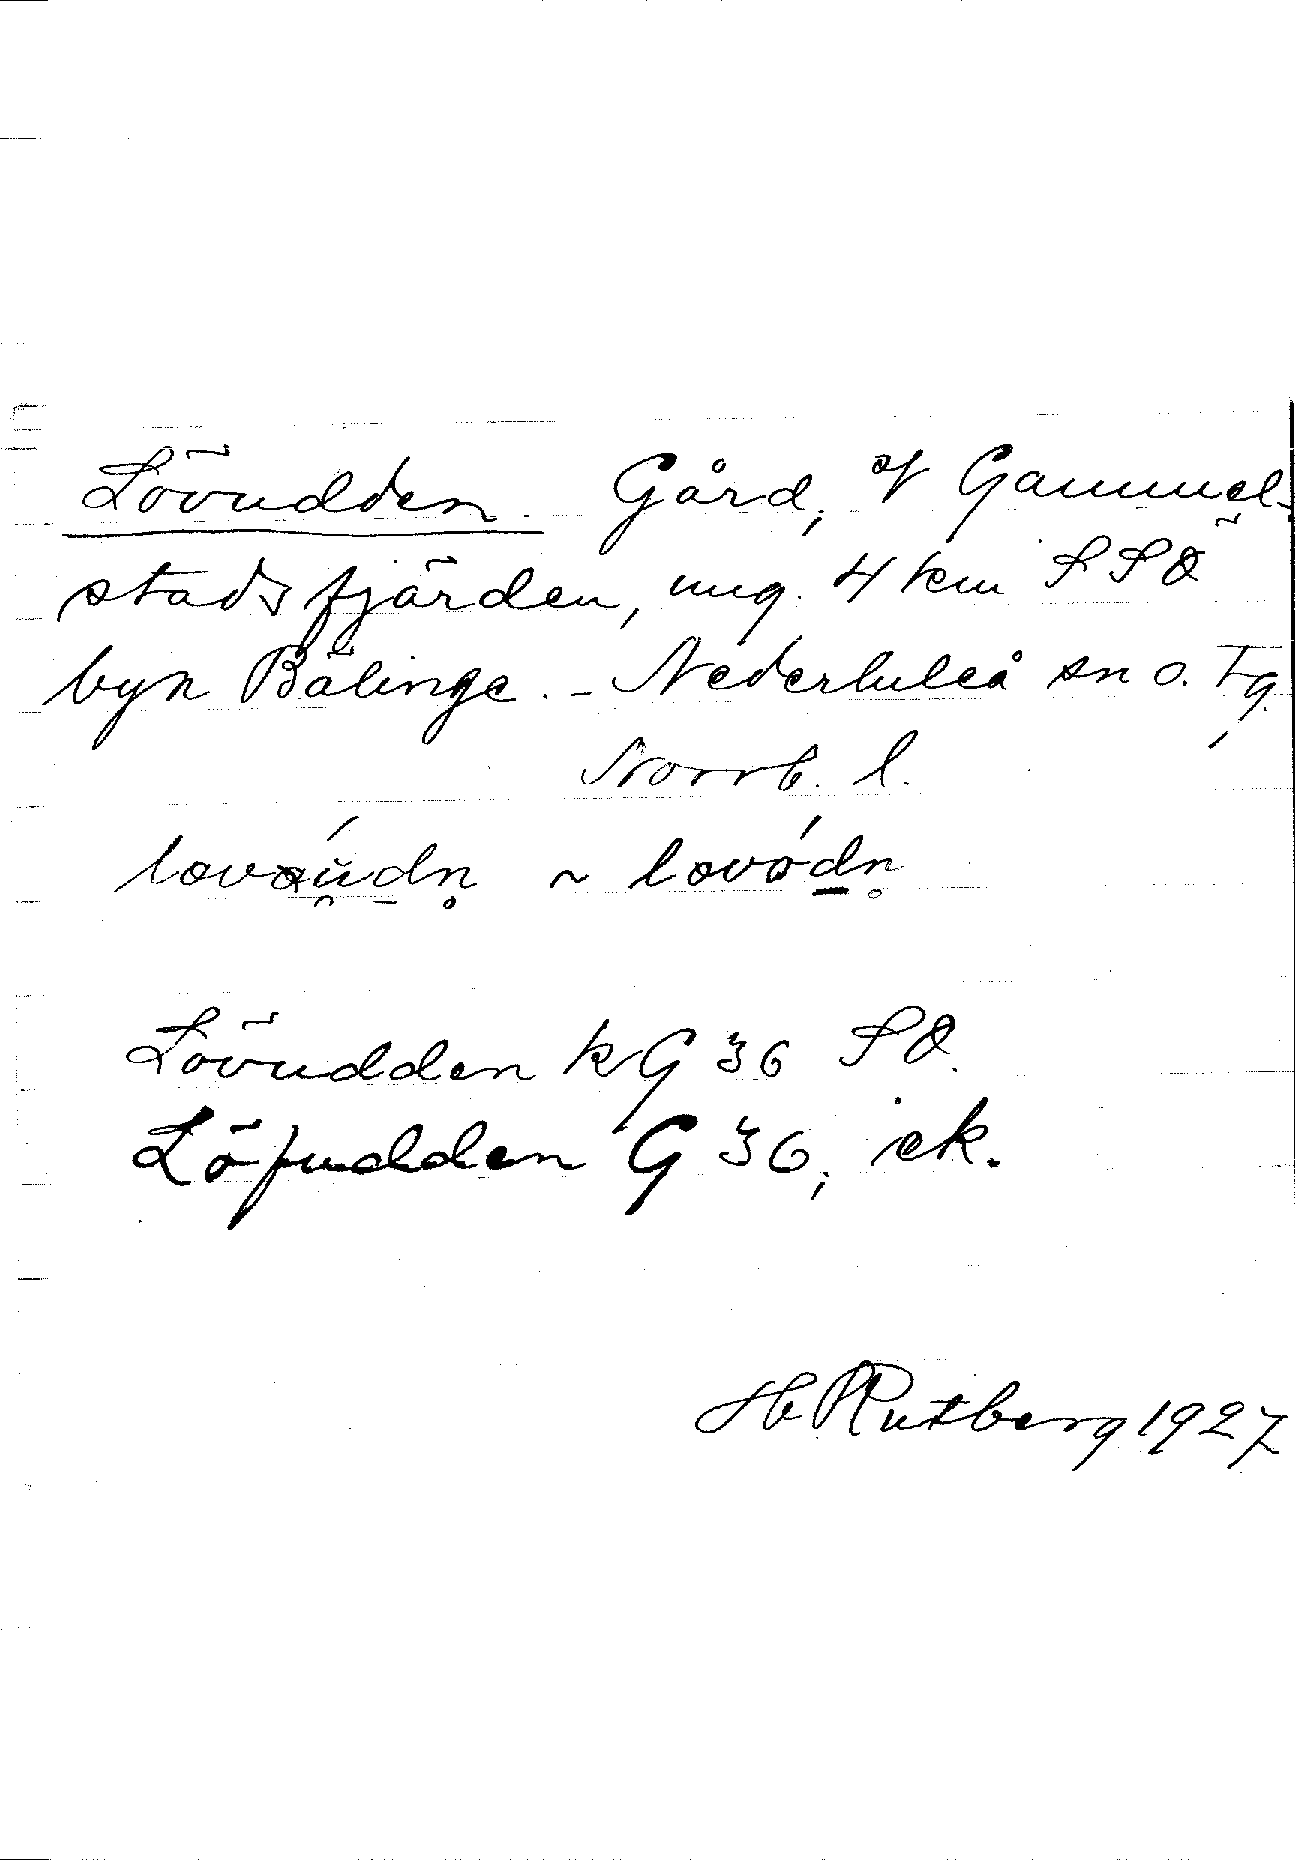 Lövudden. Gård, v Gammel-
stadsfjärden, ung. 4 km SSO
byn Bälinge. - Nederluleå sn o. tg,
Norrb. l.
~
Lövudden kG 36 SO.
Löfudden G 36, ek.
H Rutberg 1927